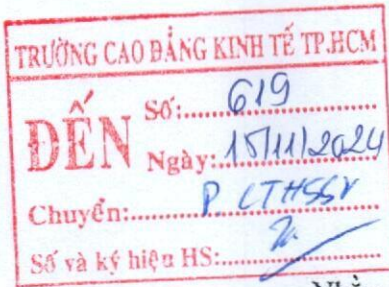 TRƯỜNG CAO ĐẲNG KINH TẾ TP.HCM
ĐẾN
Số:.......619.......
Ngày:.15/11/2024
Chuyển:........P. CTHSSV
Số và ký hiệu HS:.........